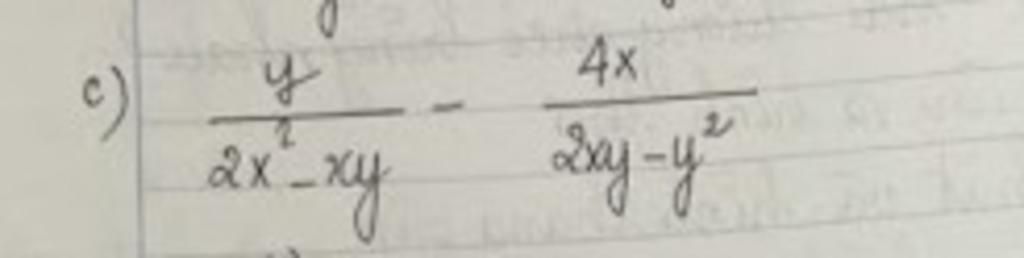 c) \frac{y}{2x^2-xy} - \frac{4x}{2xy-y^2}